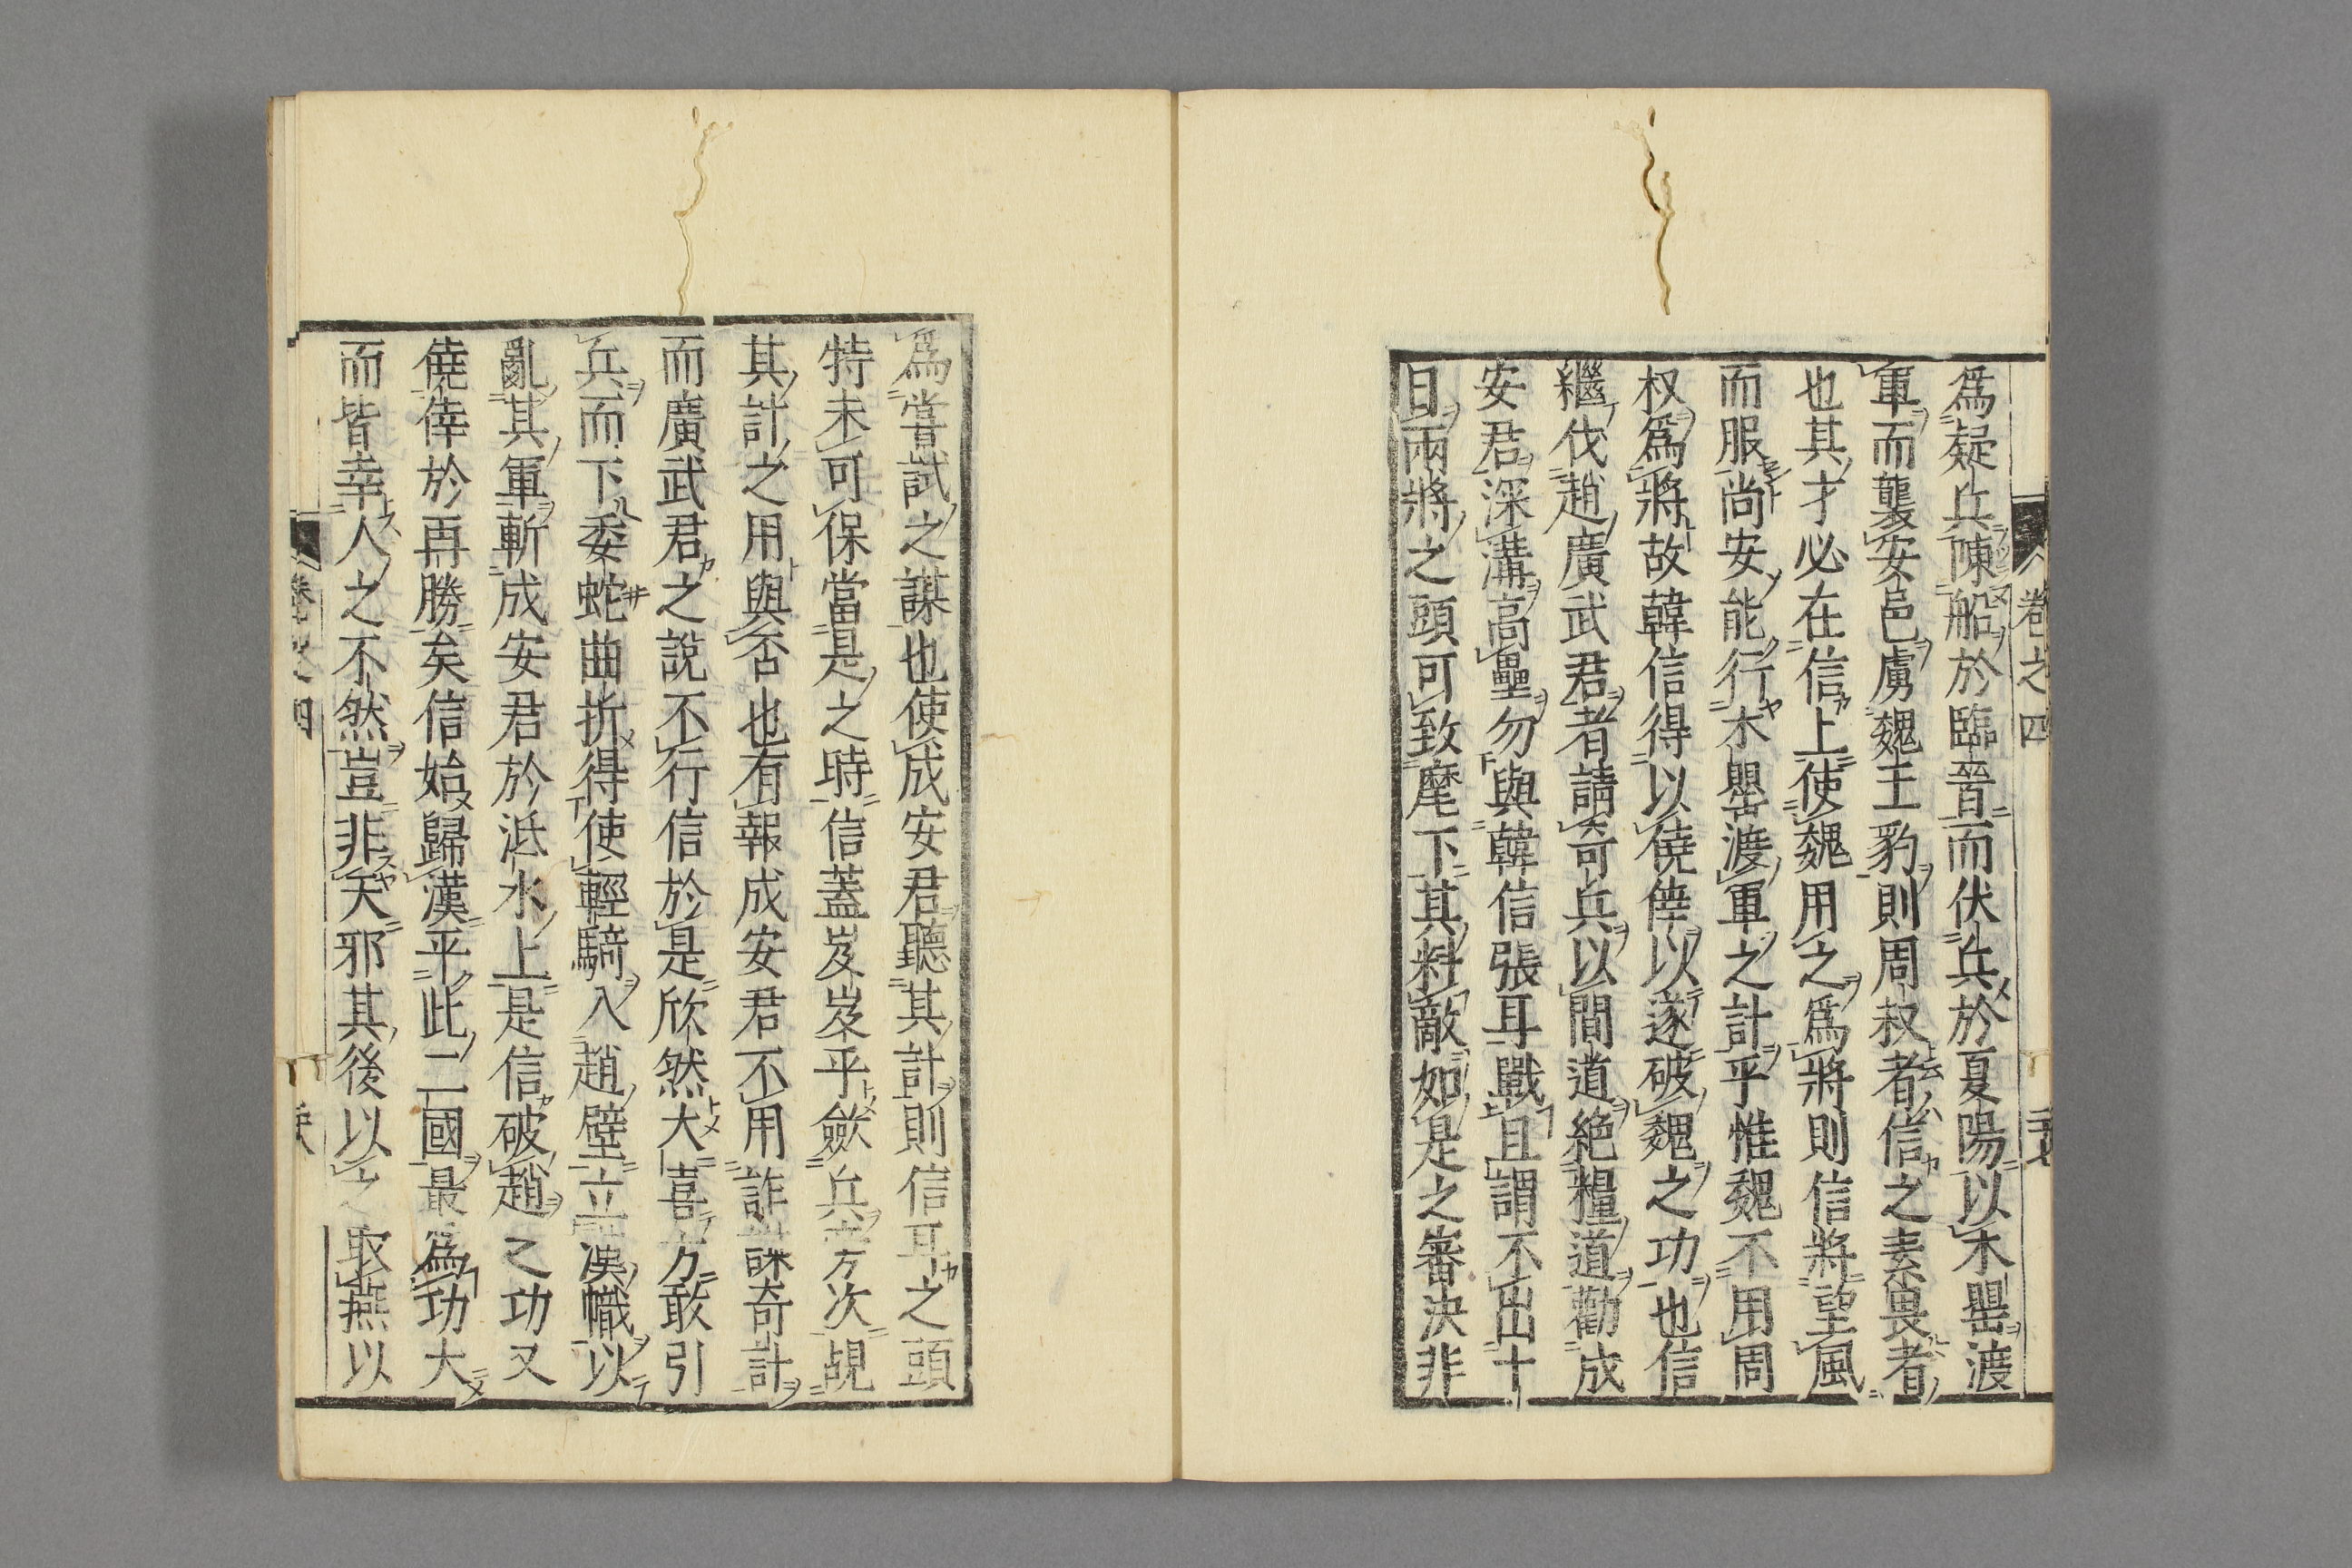 卷之四
爲疑兵陳船於臨晉而伏兵於夏陽以木罌渡
軍而襲安邑虜魏王豹則周叔者信之素畏者
也其才必在信上使魏用之爲將則信將望風
而服尚安能行木罌渡軍之計乎惟魏不用周
叔爲將故韓信得以僥倖以遂破魏之功也信
繼伐趙廣武君者請奇兵以間道絶糧道勸成
安君深溝高壘勿與韓信張耳戰且謂不出十
日兩將之頭可致麾下其料敵如是之審決非
爲嘗試之謀也使成安君聽其計則信耳之頭
特未可保當是之時信蓋岌岌乎斂兵方次覘
其計之用與否也有報成安君不用詐謀奇計
而廣武君之說不行信於是欣然大喜方敢引
兵而下委蛇曲折得使輕騎入趙壁立漢幟以
亂其軍斬成安君於泜水上是信破趙之功又
僥倖於再勝矣信始歸漢平此二國最爲功大
而皆幸人之不然豈非天邪其後以之取燕以